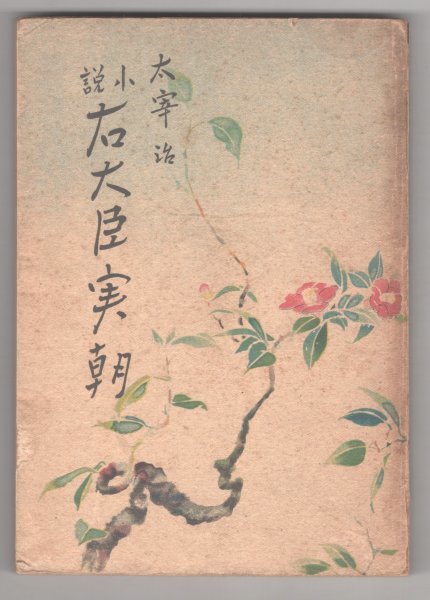 太宰治
小説
右大臣実朝